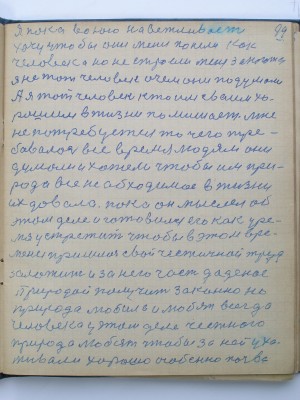 99
Я пока
хочу чтобы они меня поняли как
человека но не строили меня
я не тот человек о чем они подумали
А я тот человек кто им своим хо-
рошим в жизни помешает мне
не потребуется то чего тре-
бовалось все время людям они
думали и хотели чтобы им при-
рода все необходимое в жизни
их давала. пока он мыслел об
этом деле и готовился его как
устретить чтобы в этом вре-
мени пришлось свой честичный труд
заложить и за него гость даденое
природой получить законно но
природа любила и любят всегда
человека у этом деле честного
природа любят чтобы за ней уха-
живали хорошо особенно почва